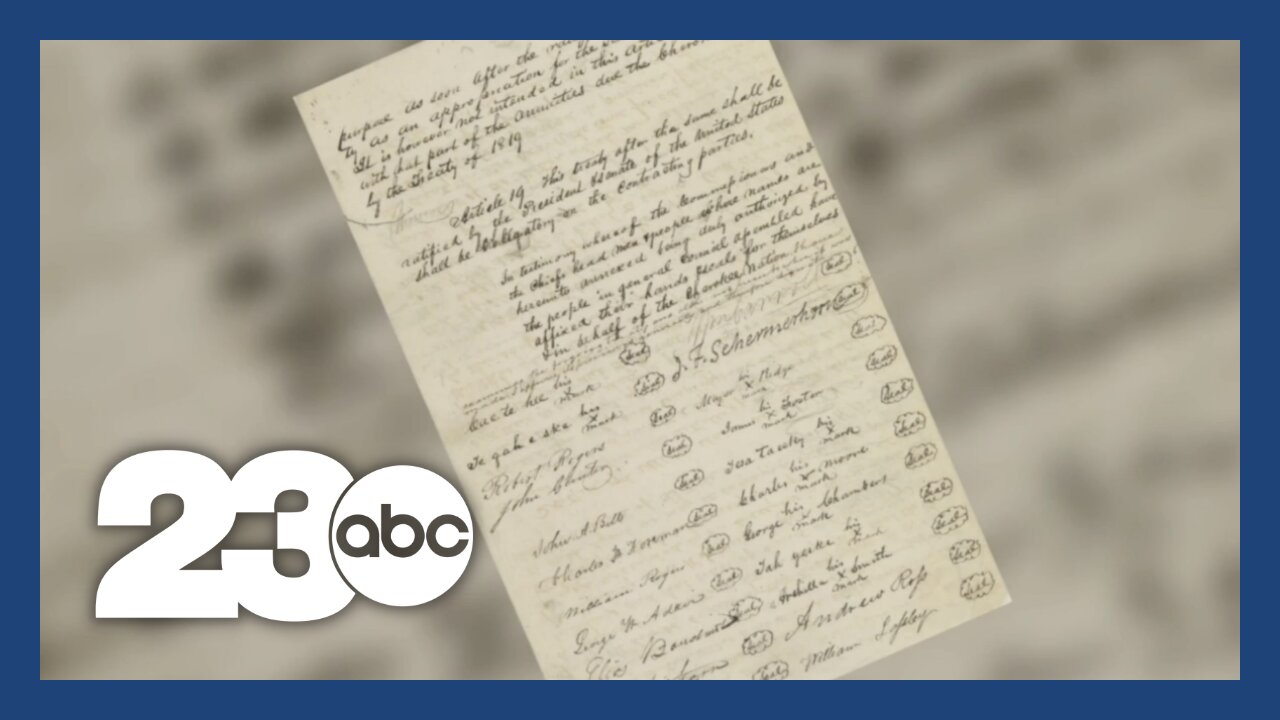 purpose as soon after the
ty as an appropriation for the
It is however not intended in this arti
with that part of the annuities due the Chero
by the Treaty of 1819
Article 19 This treaty after the same shall be
ratified by the President & Senate of the United States
shall be obligatory on the contracting parties.
In testimony whereof the Commissioners and
the Chiefs head men & people whose names are
hereunto annexed being duly authorized by
the people in general council assembled have
affixed their hands & seals for themselves
& in behalf of the Cherokee Nation
J. F. Schermerhorn Seal
his
mark Seal
Te gah e ske his
mark Seal
Major Ridge
his
x
mark Seal
Robert Rogers Seal
James Foster
his
x
mark Seal
John Seal
Tesa Taesky his
x
mark Seal
John A. Bell Seal
Charles Moore
his
x
mark Seal
Charles F Foreman Seal
George Chambers
his
x
mark Seal
William Rogers Seal
Tah yeske his
x
mark Seal
George W Adair Seal
Archilla Smith
his
x
mark Seal
Elias Boudinot Seal
Andrew Ross Seal
William Lasley Seal
23 abc